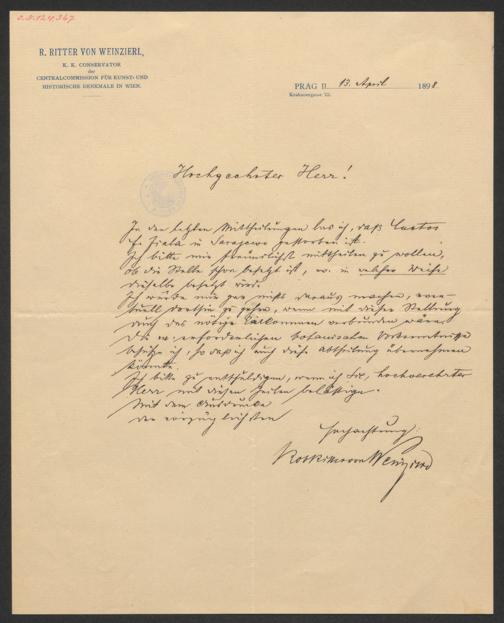 S.N.124,367.
R. RITTER VON WEINZIERL,
K. K. CONSERVATOR
der
CENTRALCOMMISSION FÜR KUNST- UND
HISTORISCHE DENKMALE IN WIEN.
PRAG II 13. April 1898
Hochgeehrter Herr!
In den letzten Mittheilungen las ich, daß Custos
Fr Fiala in Sarajewo gestorben ist.
Ich bitte mir freundlichst mittheilen zu wollen,
ob die Stelle schon besetzt ist, in welcher Weise
dieselbe besetzt wird.
Ich würde mir gar nichts daraus machen, even-
tuell dorthin zu gehen, wenn mit dieser Stellung
auch das nötige Einkommen verbunden wäre.
Die erforderlichen botanischen Vorkenntnisse
besitze ich, so daß ich auch diese Abtheilung übernehmen
könnte.
Ich bitte zu entschuldigen, wenn ich Sie, hochverehrter
Herr mit diesen Zeilen belästige.
Mit dem Ausdrucke
der vorzüglichsten
Hochachtung
Weinzierl